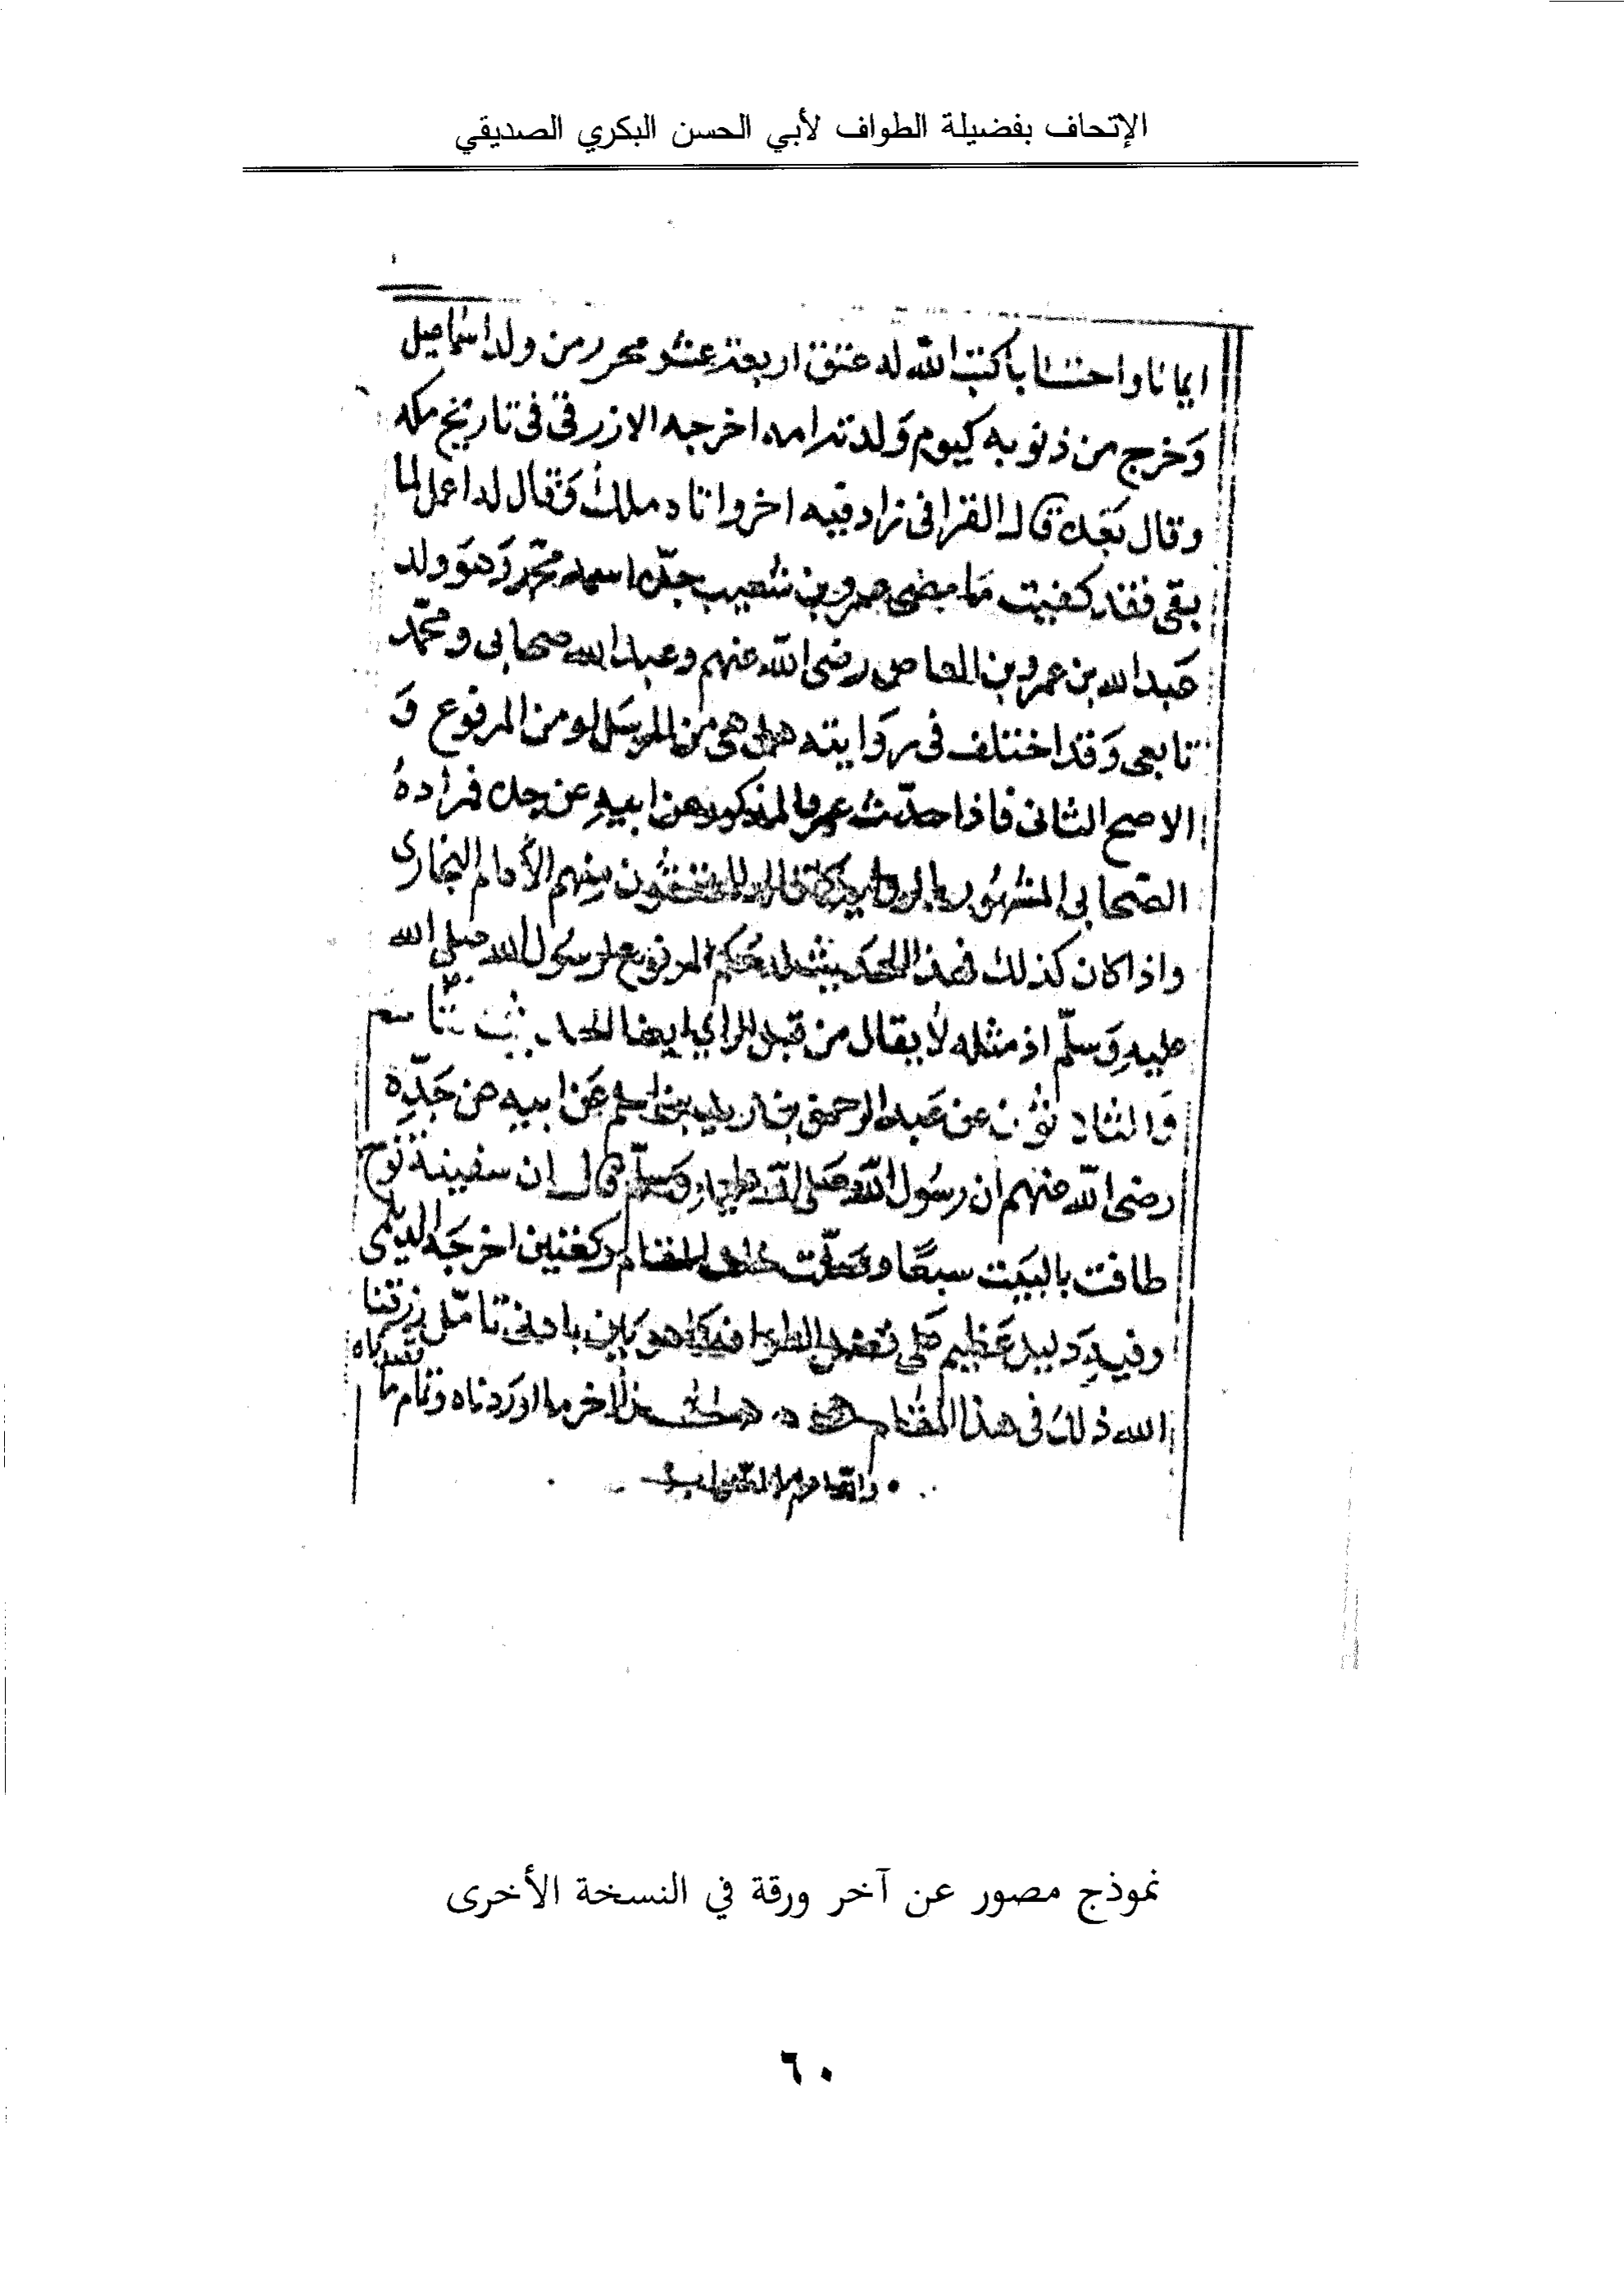 الإتحاف بفضيلة الطواف لأبي الحسن البكري الصديقي
ايمانا واحتسابا كتب الله له عتق اربعة عشر محرر من ولد اسماعيل
وَخرج من ذنوبه كيوم وَلدته امه اخرجه الازرقى فى تاريخ مكه
وقال بَعده قال القرافى زاد فيه اخر واتاه ملك وَقال له اعمل لما
بقى فقد كفيت مَا مضى عمرو بن شعيب جدّه اسمه محمّد وَهوَ ولد
عبد الله بن عمرو بن العاص رضى الله عنهم وعبد الله صحابى ومحمّد
تابعى وَقد اختلف فى روَايته هل هى من المرسَل او من المرفوع وَ
الاصح الثانى فاذا حدّث عمرو المذكور عن ابيهِ عن جده فمرادهُ
الصّحابى المشهُور بالروايه كما قاله المحققون منهم الأمام البخارى
واذا كان كذلك فهذا الحَديث له حُكم المرفوع لرسُول الله صلى الله
عليهِ وَسلّم اذ مثله لا يقال من قبل الراي ايضا الحديث التّاسع
وَالثلاثون عن عَبد الرحمن بن زيد بن اسلم عَن ابيه عن جَدّه
رضى الله عنهم ان رسُول الله صَلى الله عليه وَسلّم قال ان سفينة نوح
طافت بالبَيت سبعًا وصَلّت خلف المقام ركعتين اخرجَه الديلمى
وفيهِ دَليل عَظيم عَلى فضل الطواف كما هو بَين بادنى تامّل رزقنا
الله ذلك فى هذا المقام هذا اخر ما اوردناه وتمام ما
قصدناه
والله اعلم بالصّواب
نموذج مصور عن آخر ورقة في النسخة الأخرى
٦٠